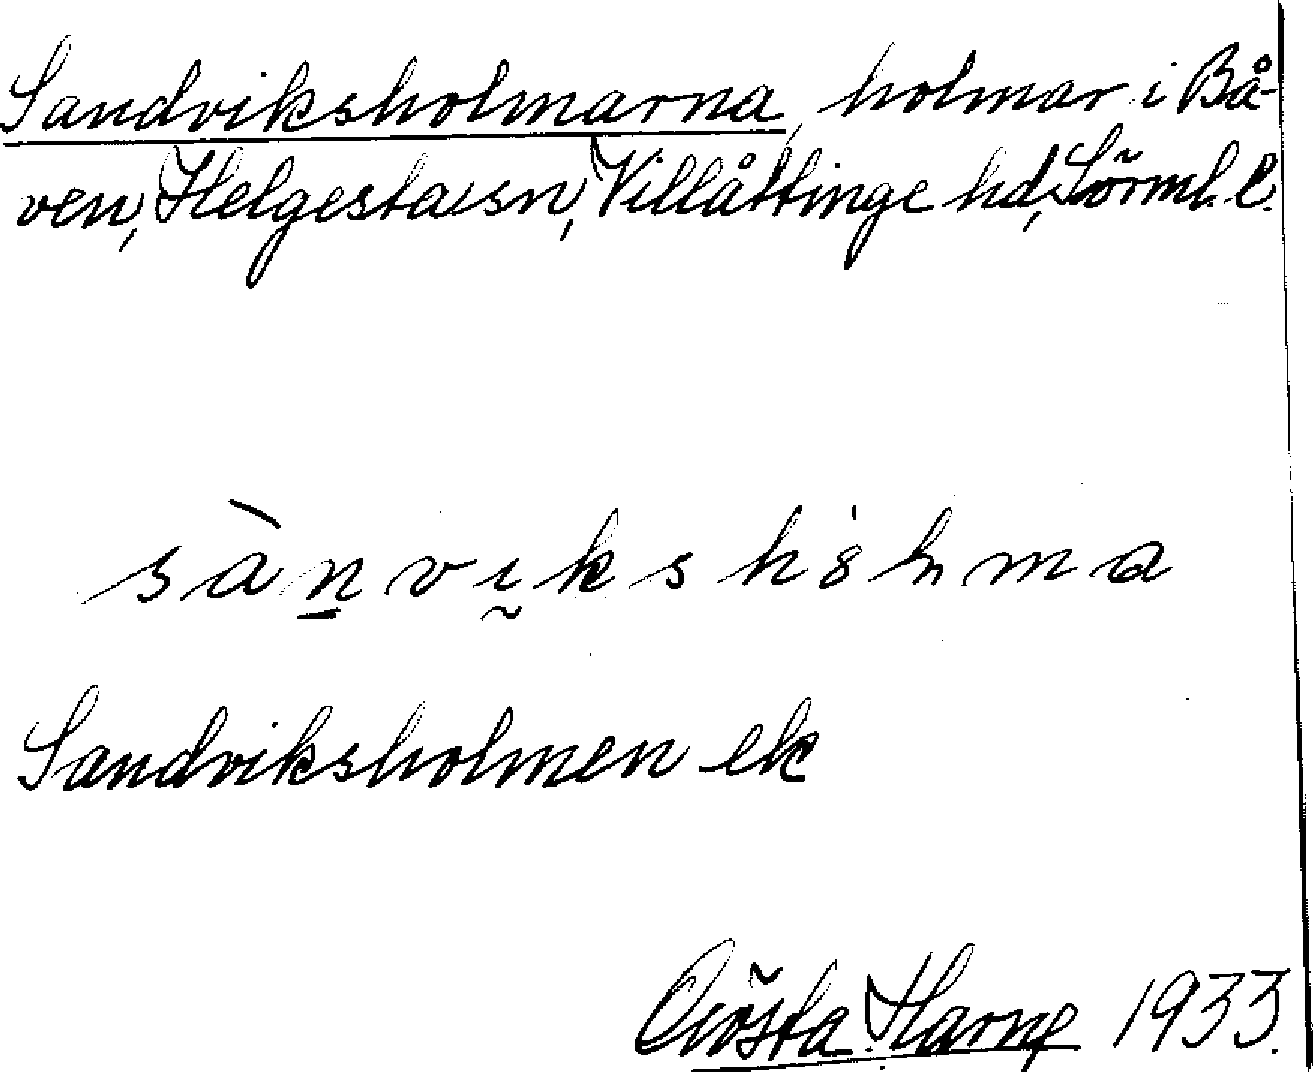 Sandviksholmarna, holmar i Bå-
ven, Helgesta sn, Villåttinge hd, Sörml. l.
sànvikshölma
Sandviksholmen ek
Gösta Harne 1933.